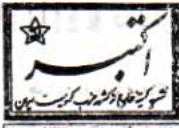 اکتبر
نشریه کمیته خارج از کشور حزب کمونیست ایران